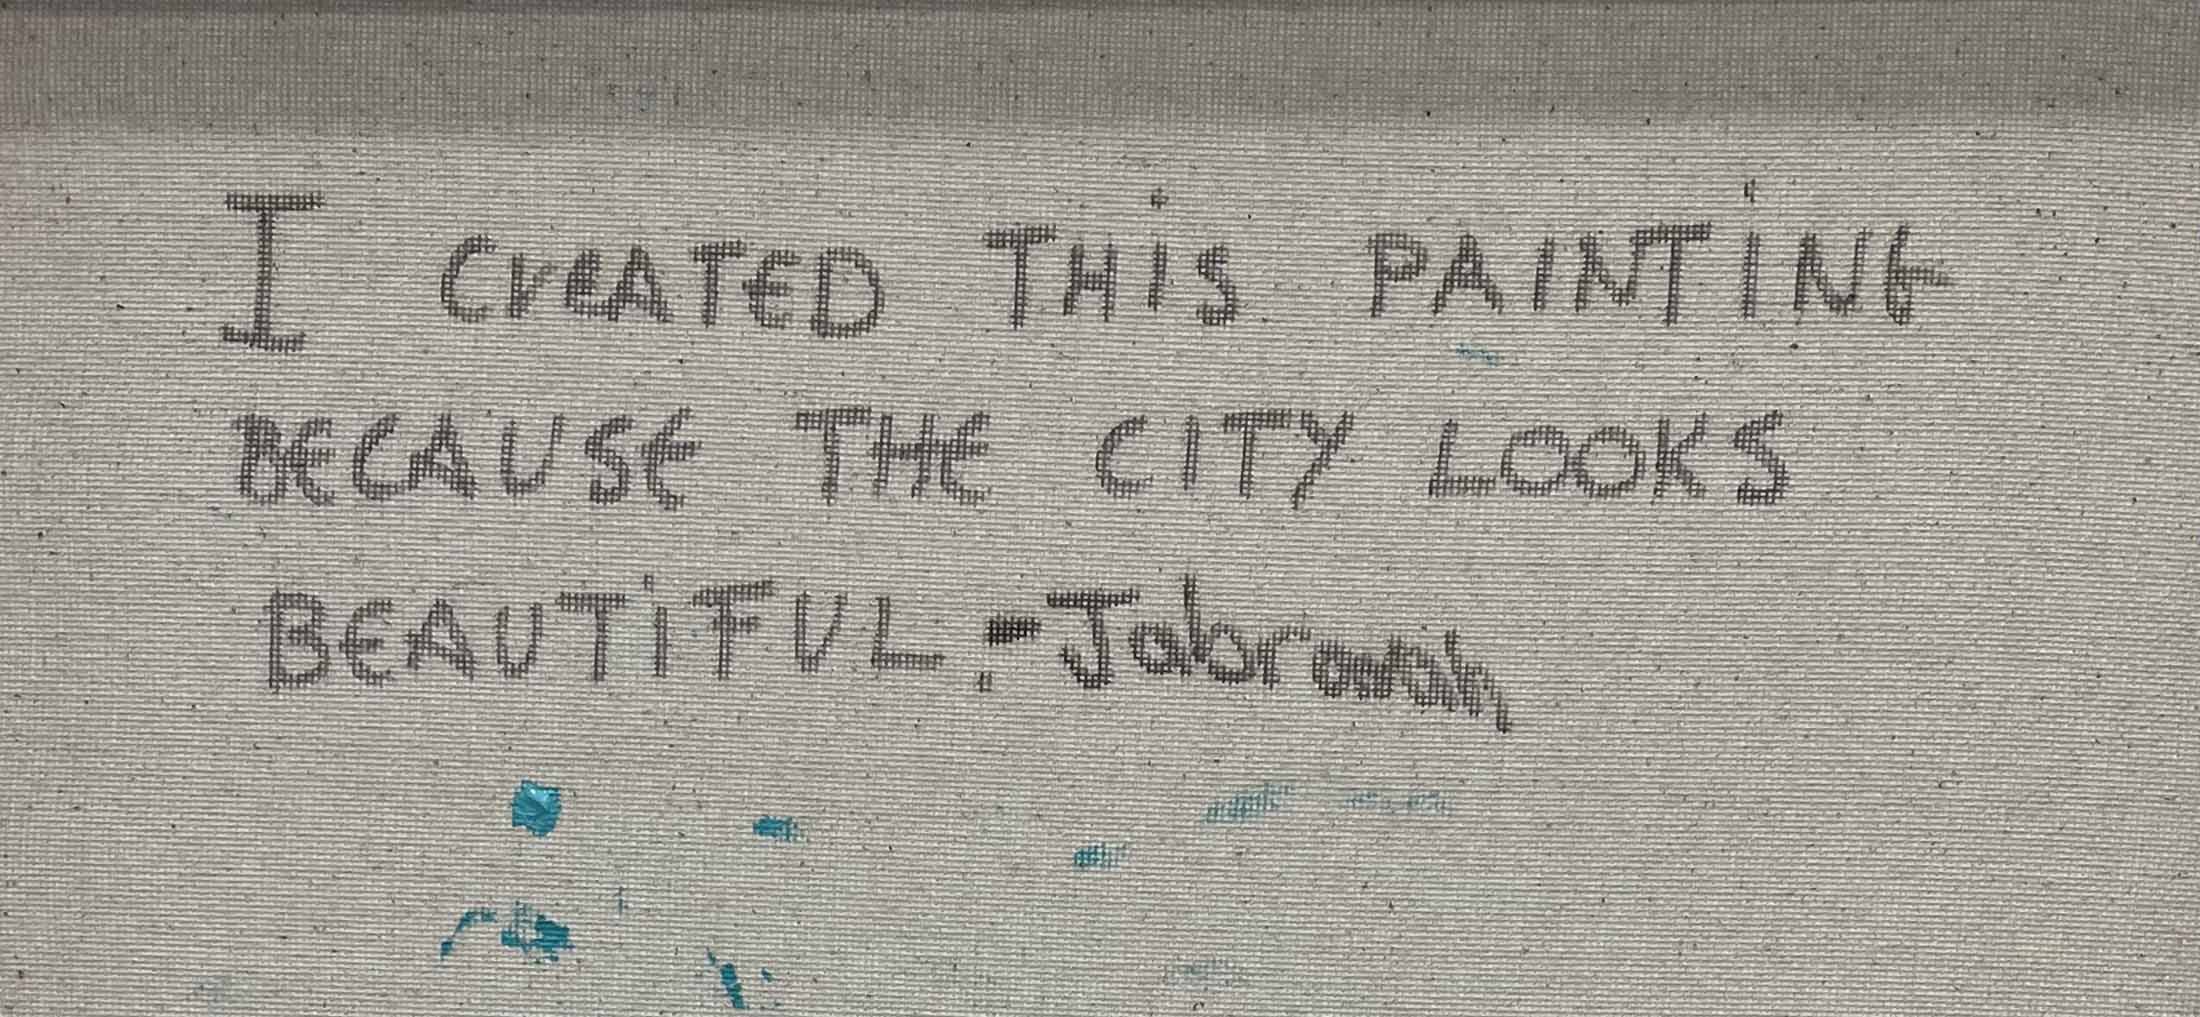 I CreATED THiS PAINTiNG
BECAUSE THE CITY LOOKS
BEAUTiFUL.